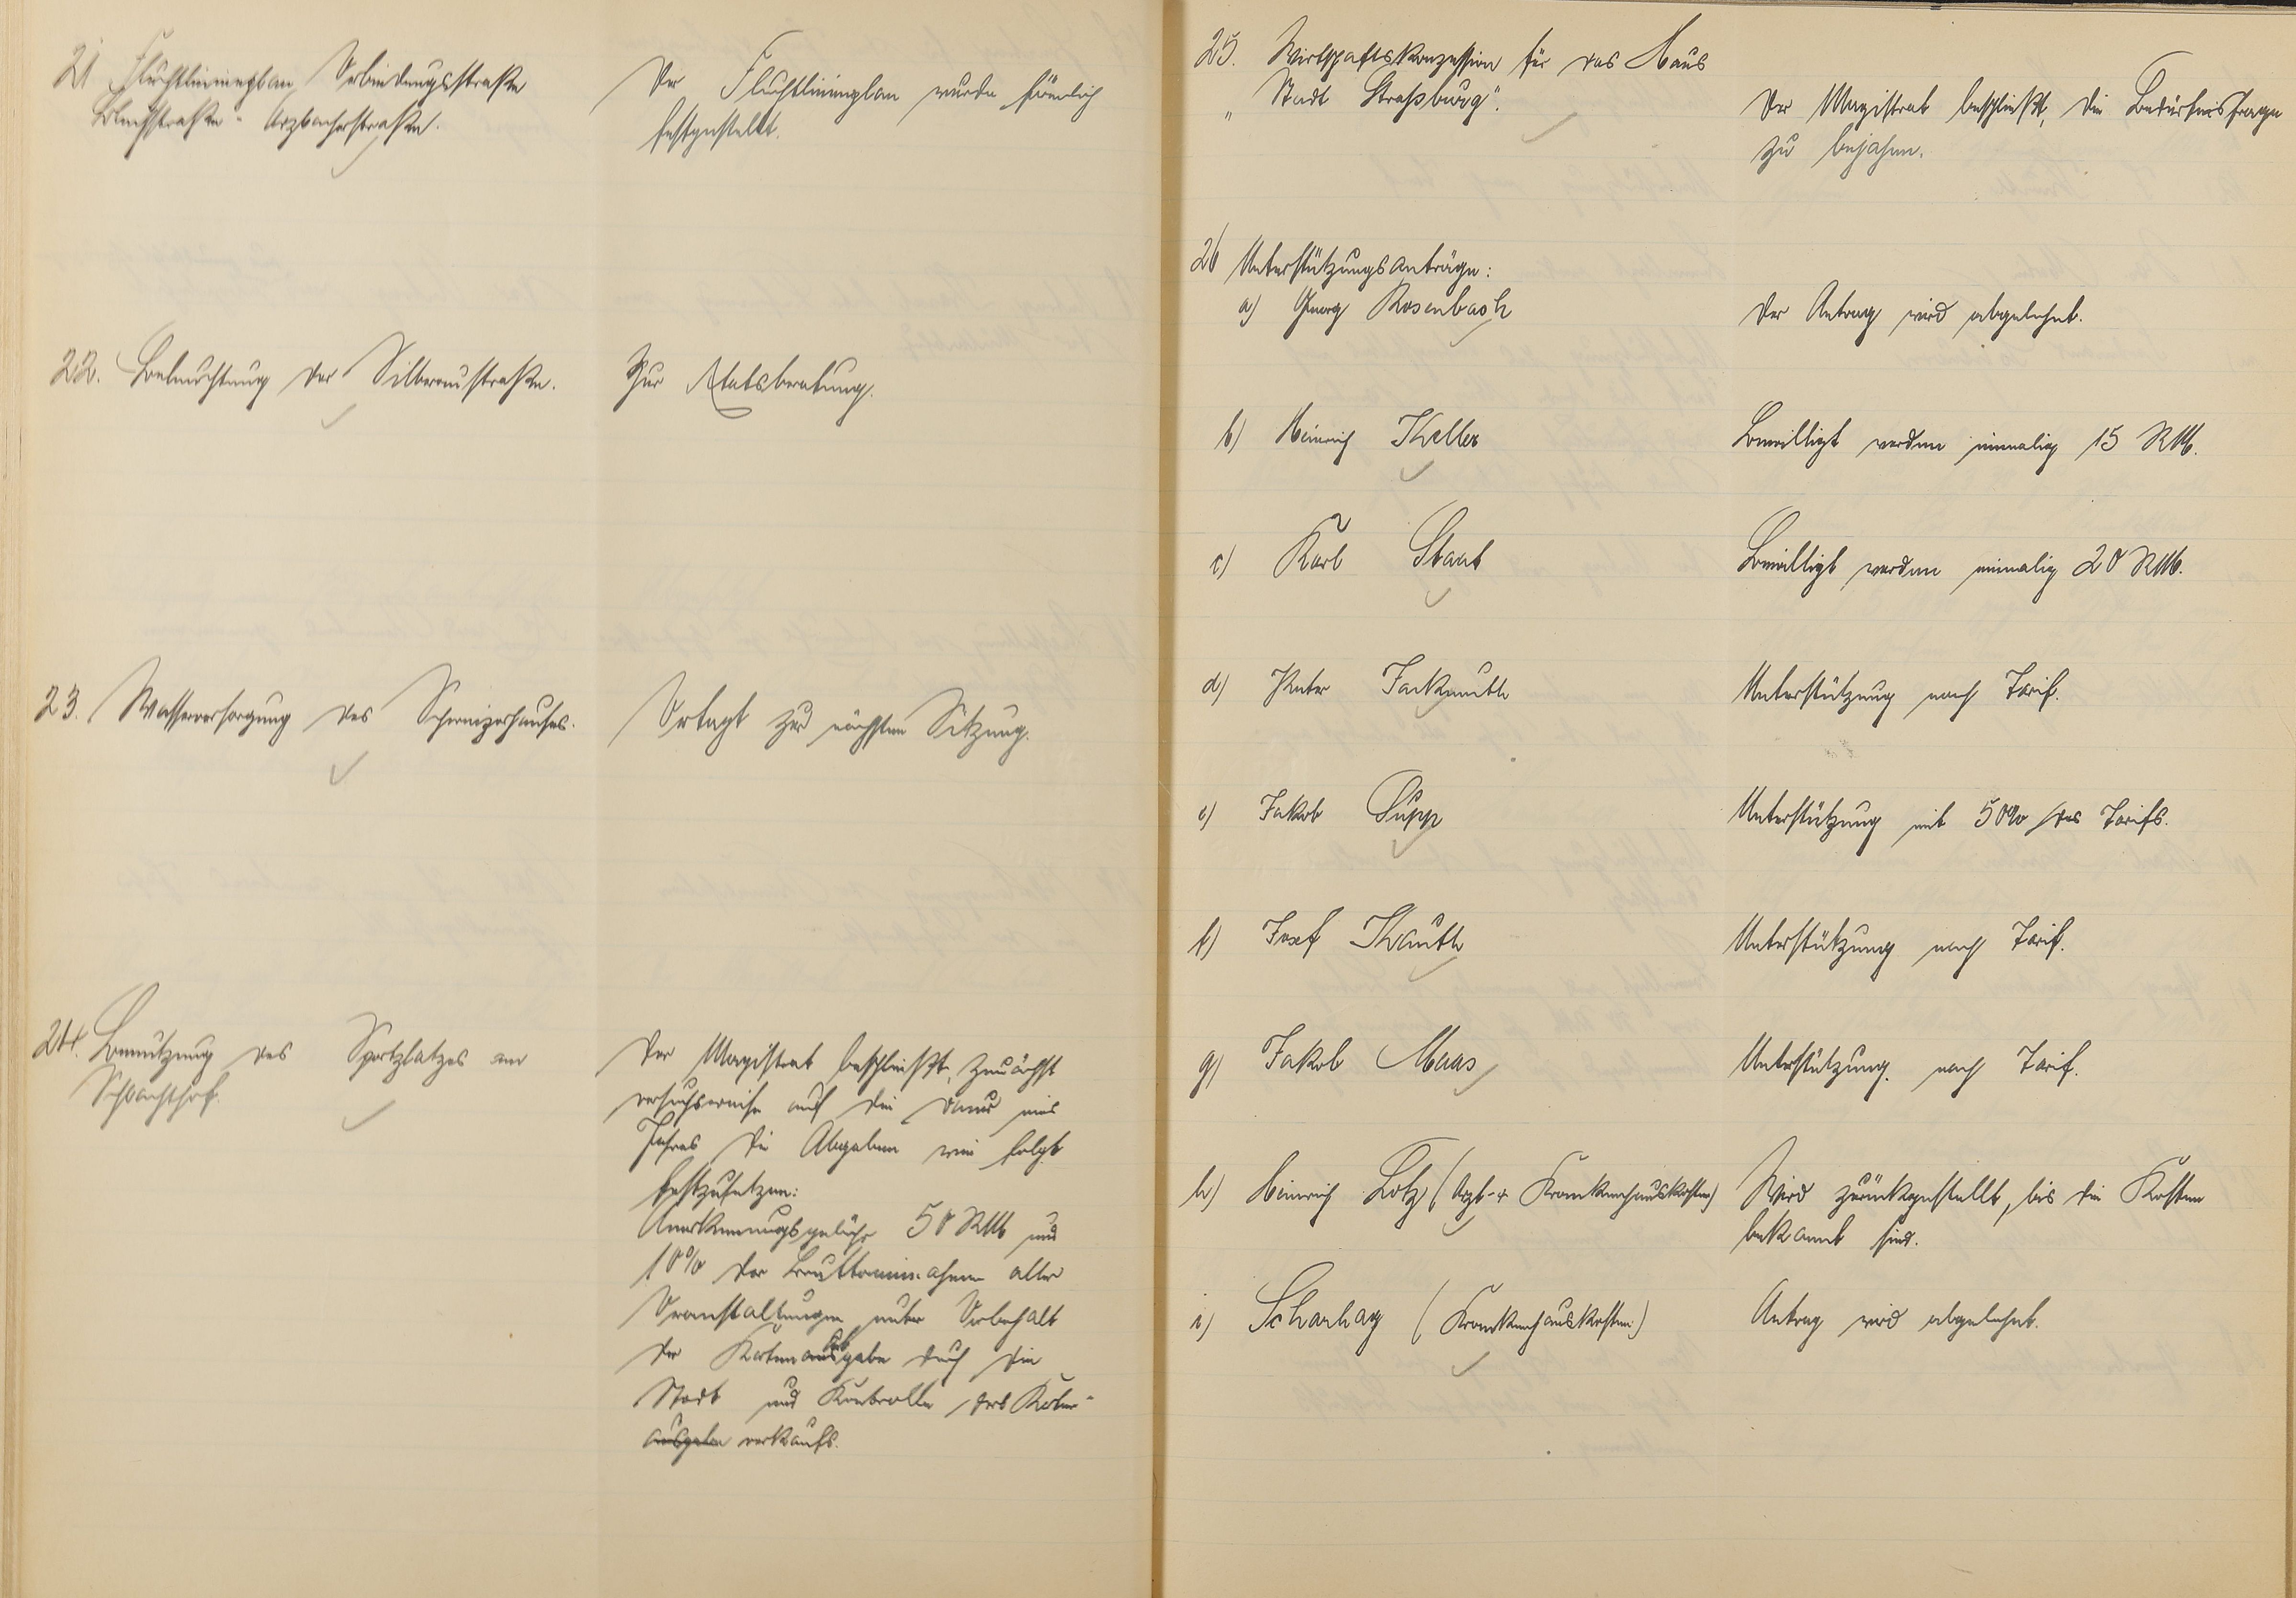 21 Fluchtlinienplan Verbindungsstraße
Bleichstraße - Arzbacherstraße.
Der Fluchtlinienplan wurde förmlich
festgestellt.
22. Beleuchtung der Silberaustraße.
Zur Etatsberatung.
23. Wasserversorgung des Schweizerhauses.
Vertagt zur nächsten Sitzung.
24. Benutzung des Sportplatzes am
Schlachthof.
Der Magistrat beschließt, zunächst
versuchsweise auf die Dauer eines
Jahres die Abgaben wie folgt
festzusetzen:
Anerkennungsgebühr 50 RM und
10% der Bruttoeinnahmen aller
Veranstaltungen unter Vorbehalt
der Kartenausgabe durch die
Stadt und Kontrolle des Karten-
ausgabe verkaufs.
25. Wirtschaftskonzession für das Haus
"Stadt Straßburg".
Der Magistrat beschließt, die Bedürfnisfrage
zu bejahen.
26 Unterstützungsanträge:
a) Georg Rosenbach
Der Antrag wird abgelehnt.
b) Heinrich Keller
Bewilligt werden einmalig 15 RM.
c) Karl Staat
Bewilligt werden einmalig 20 RM.
d) Peter
Unterstützung nach Tarif.
e) Jakob Supp
Unterstützung mit 50% des Tarifs.
f) Josef Kauth
Unterstützung nach Tarif.
g) Jakob Maas
Unterstützung nach Tarif.
h) Heinrich Lotz (Arzt- & Krankenhauskosten)
Wird zurückgestellt, bis die Kosten
bekannt sind.
i) Scharhag (Krankenhauskosten)
Antrag wird abgelehnt.